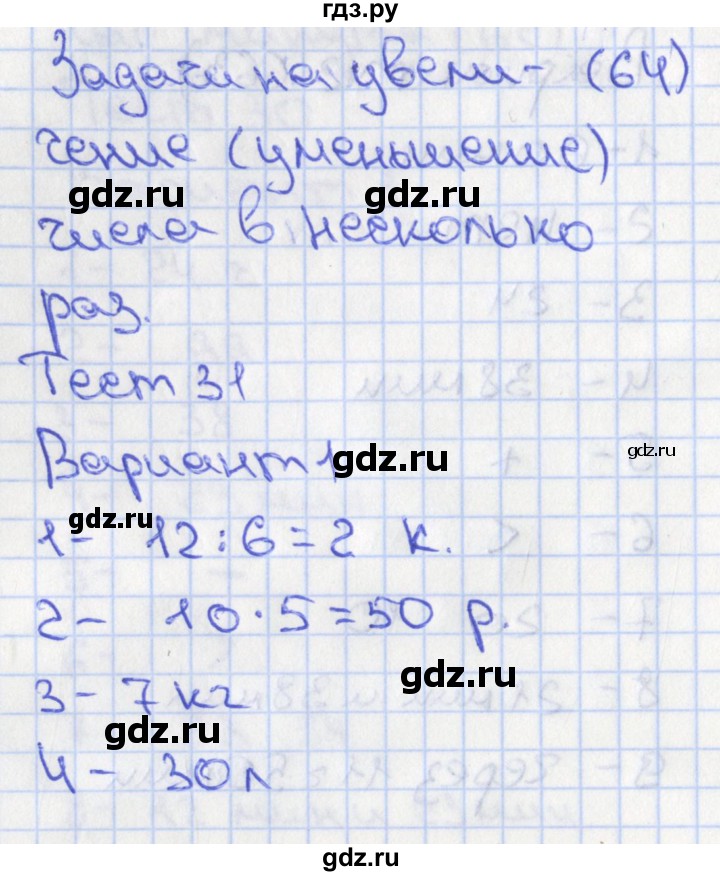 гдз.ру
Задачи на увели- (64)
чение (уменьшение)
gdz.ru gdz.ru
числа в несколько
раз.
Тест 31
Вариант 1
gdz.ru
gdz.ru
gdz.ru
1- 12:6=2 к.
2- 10·5=50 р.
gdz.ru
3- 7 кг
gdz.ru
4- 30 л
gdz.ru